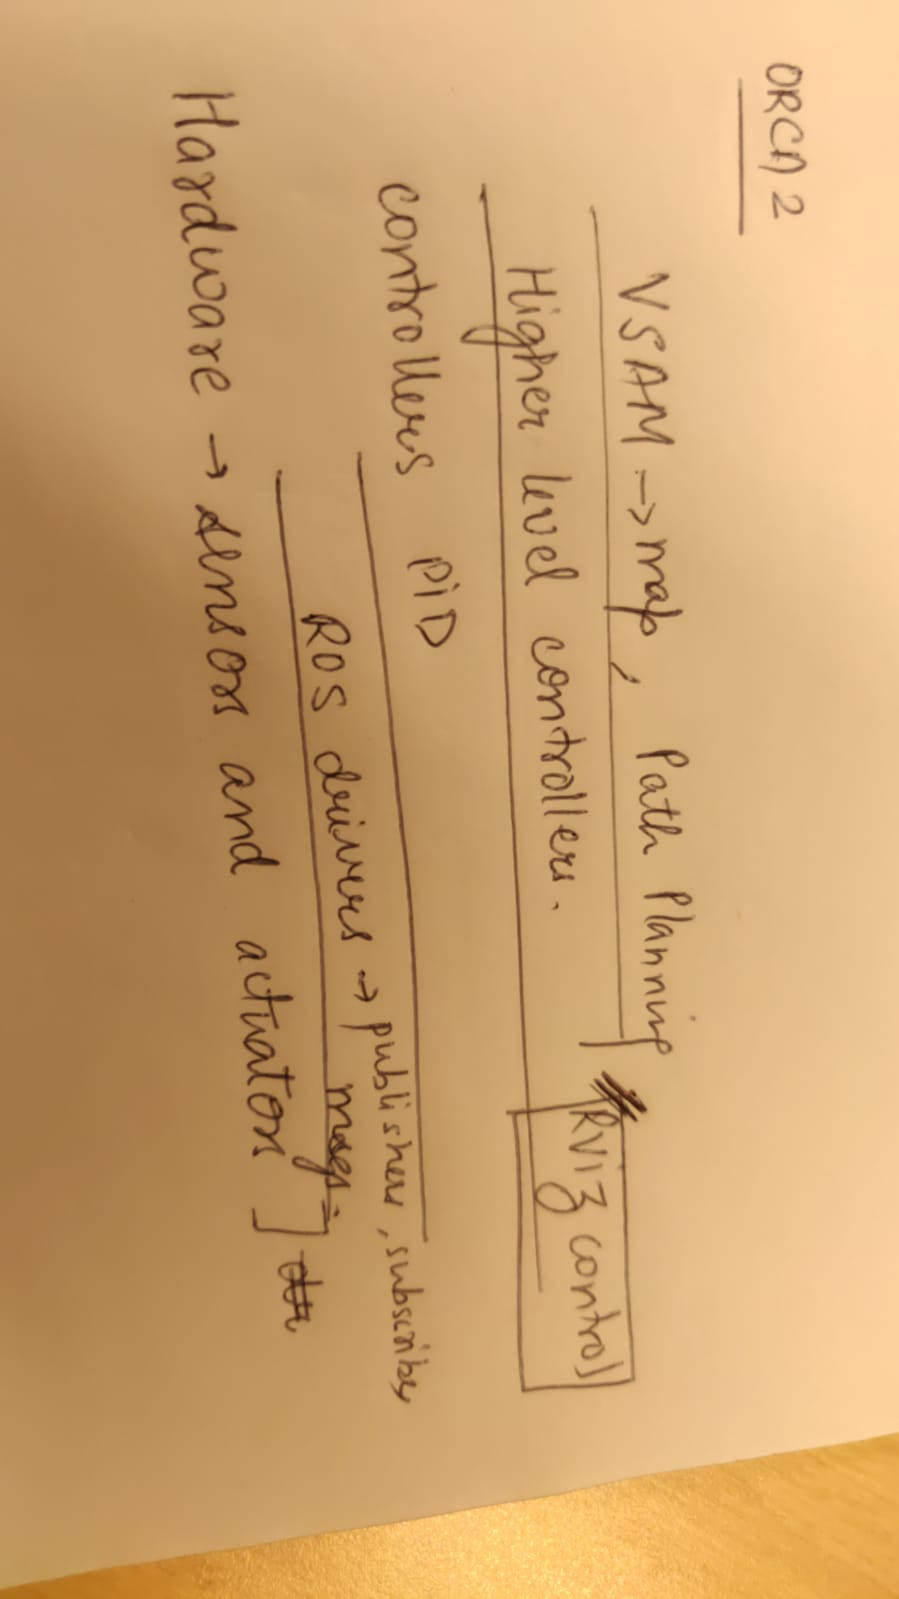 ORCA 2
VSAM → map, Path Planning
Higher level controllers.
RViz control
controllers PiD
ROS drivers → publishers, subscriber
msgs.
Hardware → sensors and actuators ]